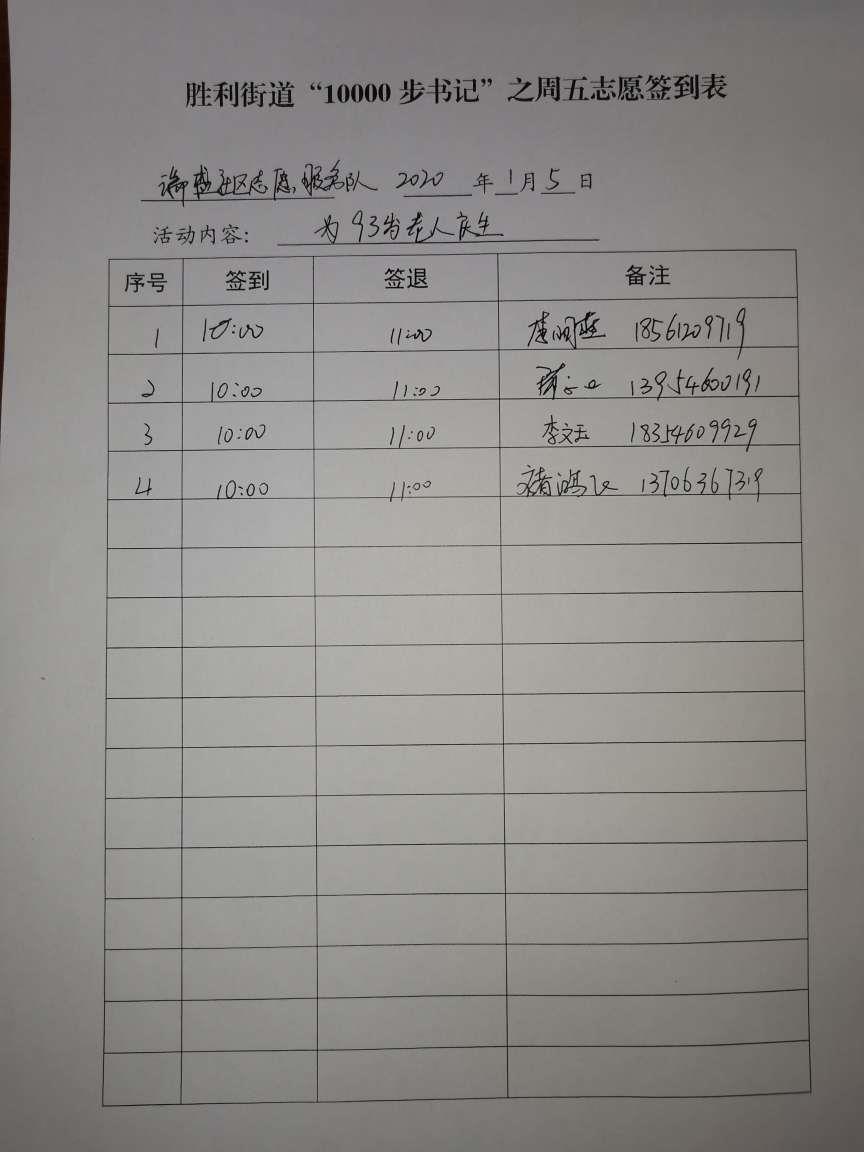 胜利街道“10000步书记”之周五志愿签到表
社区志愿服务队 2020 年 1 月 5 日
活动内容: 为93岁老人庆生
序号 签到 签退 备注
1 10:00 11:00 18561209719
2 10:00 11:00 13954600191
3 10:00 11:00 李文玉 18354609929
4 10:00 11:00 褚鸿飞 13706367319